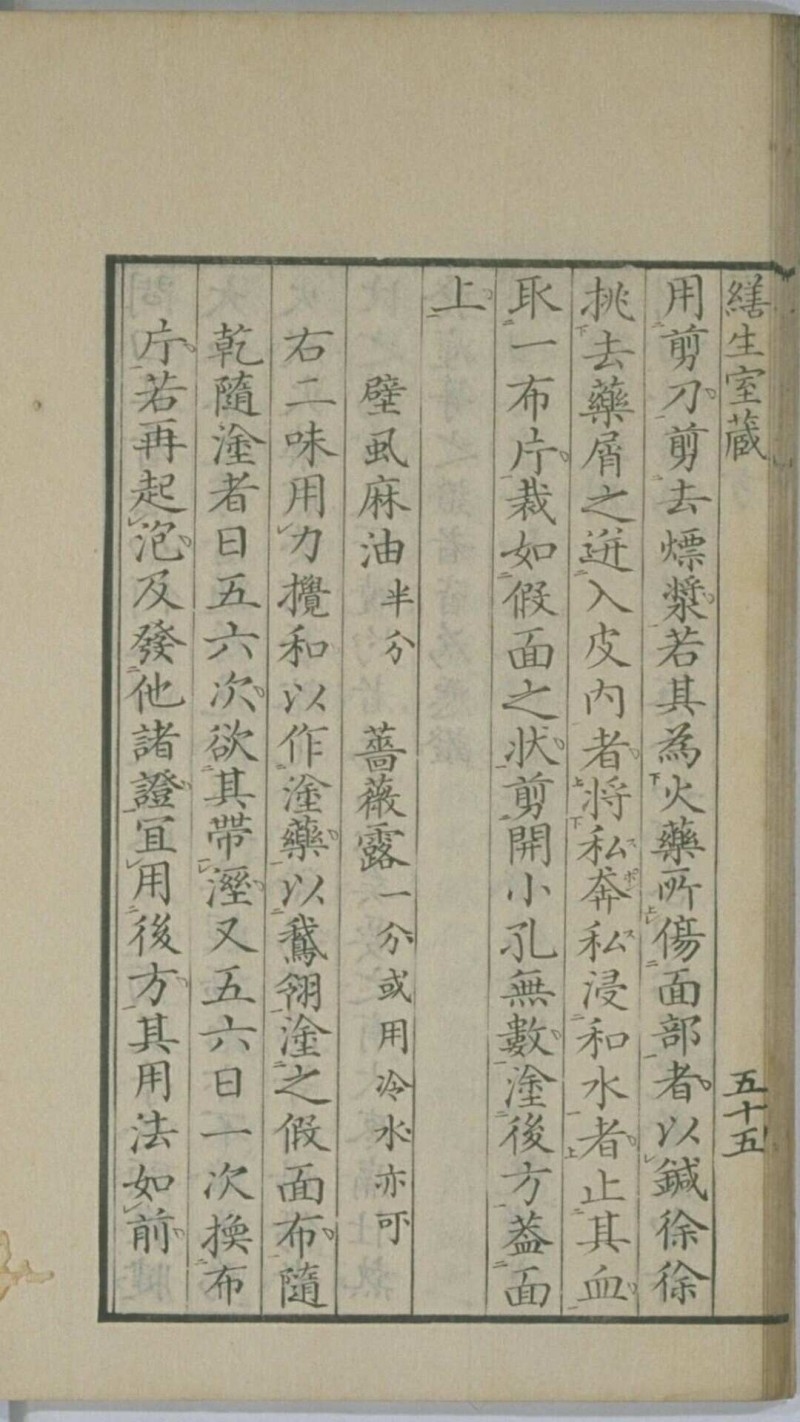 繕生室蔵 五十五
用剪刀剪去熛漿若其為火藥所傷面部者以鍼徐徐
挑去藥屑之迸入皮内者將私奔私浸和水者止其血
取一布片裁如假面之状剪開小孔無數塗後方蓋面
上
壁虱麻油半分 薔薇露一分或用冷水亦可
右二味用力攪和以作塗藥以鵞翎塗之假面布隨
乾隨塗者日五六次欲其帶溼又五六日一次換布
片若再起泡及發他諸證宜用後方其用法如前